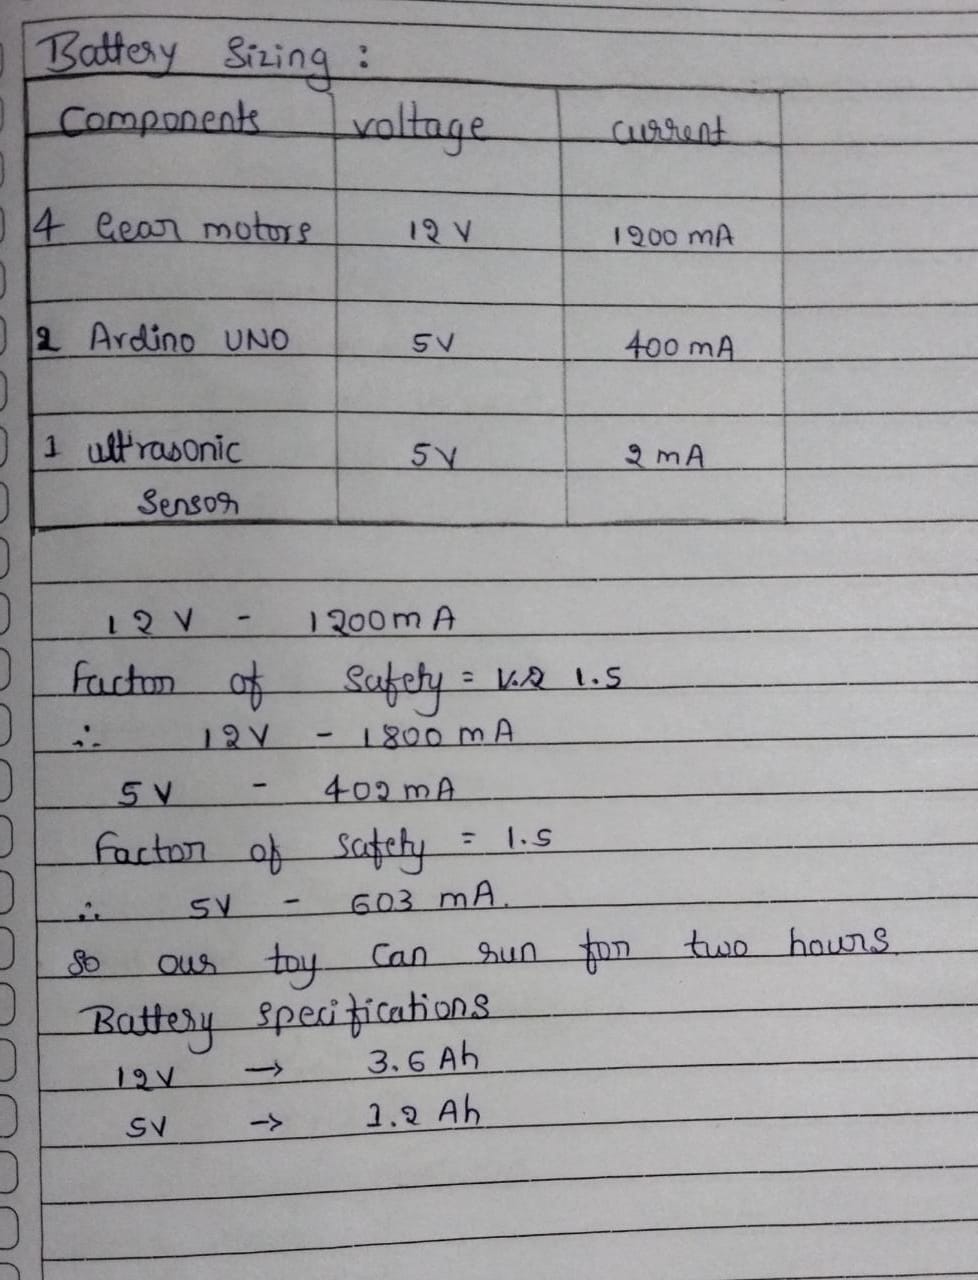 Battery Sizing :
Components voltage current
4 Gear motors 12 V 1200 mA
2 Ardino UNO 5V 400 mA
1 ultrasonic 5V 2 mA
Sensor
12 V - 1200 mA
Factor of Safety = 1.5
∴ 12V - 1800 mA
5 V - 402 mA
Factor of safety = 1.5
∴ 5V - 603 mA.
So our toy can run for two hours
Battery specifications
12V → 3.6 Ah
5V → 1.2 Ah